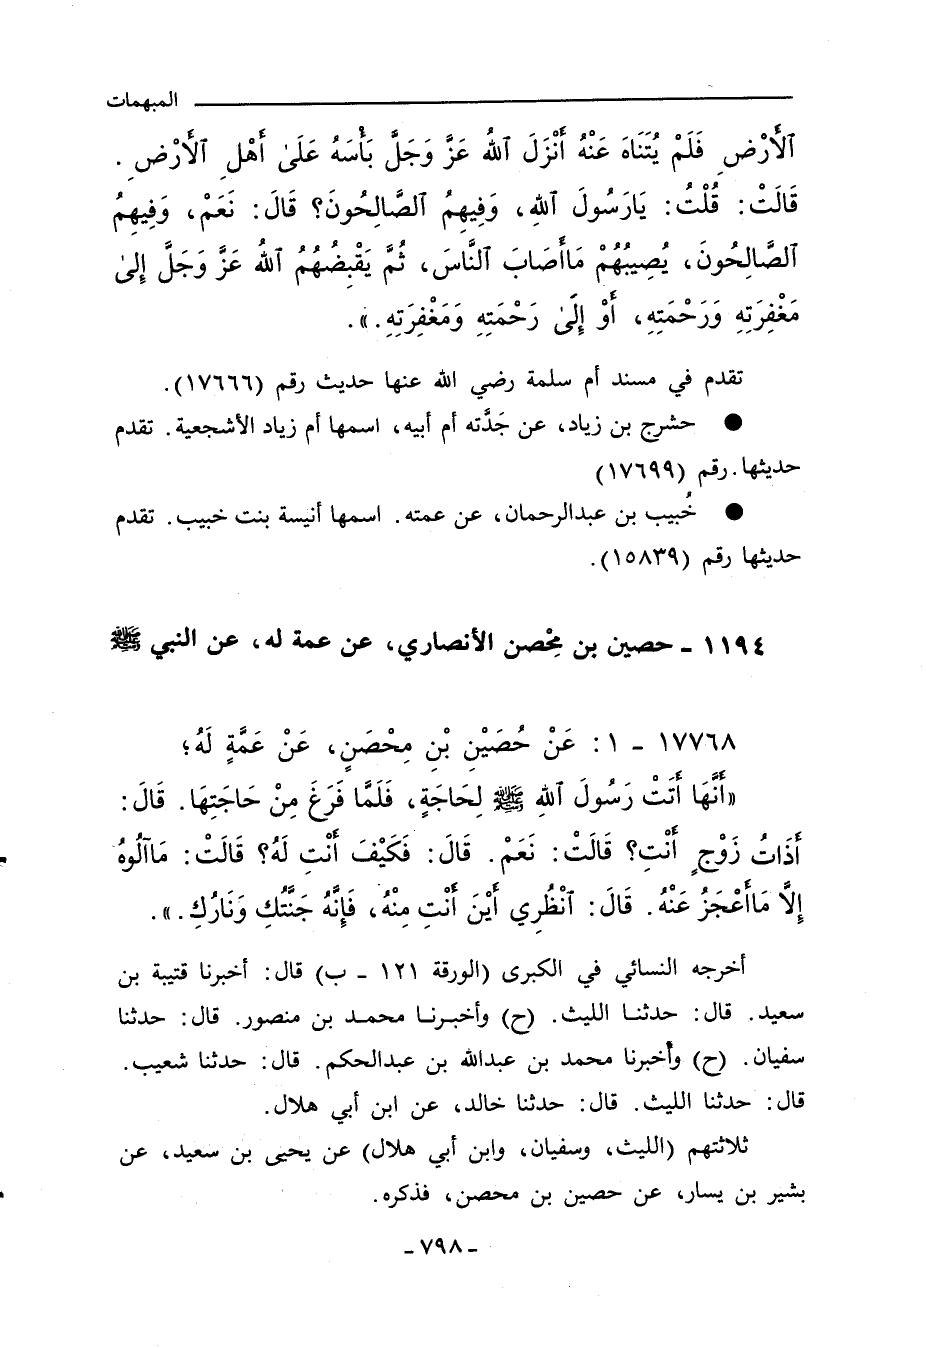 المبهمات
ٱلْأَرْضِ فَلَمْ يُتَنَاهَ عَنْهُ أَنْزَلَ ٱللهُ عَزَّ وَجَلَّ بَأْسَهُ عَلَىٰ أَهْلِ ٱلْأَرْضِ .
قَالَتْ: قُلْتُ: يَارَسُولَ ٱللهِ، وَفِيهِمُ ٱلصَّالِحُونَ؟ قَالَ: نَعَمْ، وَفِيهِمُ
ٱلصَّالِحُونَ، يُصِيبُهُمْ مَاأَصَابَ ٱلنَّاسَ، ثُمَّ يَقْبِضُهُمُ ٱللهُ عَزَّ وَجَلَّ إِلىٰ
مَغْفِرَتِهِ وَرَحْمَتِهِ، أَوْ إِلَىٰ رَحْمَتِهِ وَمَغْفِرَتِهِ.».
تقدم في مسند أم سلمة رضي الله عنها حديث رقم (١٧٦٦٦).
● حشرج بن زياد، عن جَدَّته أم أبيه، اسمها أم زياد الأشجعية. تقدم
حديثها. رقم (١٧٦٩٩)
● خُبيب بن عبدالرحمان، عن عمته. اسمها أنيسة بنت خبيب. تقدم
حديثها رقم (١٥٨٣٩).
١١٩٤ - حصين بن مِحْصن الأنصاري، عن عمة له، عن النبي ﷺ
١٧٧٦٨ - ١: عَنْ حُصَيْنِ بْنِ مِحْصَنٍ، عَنْ عَمَّةٍ لَهُ؛
«أَنَّهَا أَتَتْ رَسُولَ ٱللهِ ﷺ لِحَاجَةٍ، فَلَمَّا فَرَغَ مِنْ حَاجَتِهَا. قَالَ:
أَذَاتُ زَوْجٍ أَنْتِ؟ قَالَتْ: نَعَمْ. قَالَ: فَكَيْفَ أَنْتِ لَهُ؟ قَالَتْ: مَاآلُوهُ
إِلَّا مَاأَعْجَزُ عَنْهُ. قَالَ: ٱنْظُرِي أَيْنَ أَنْتِ مِنْهُ، فَإِنَّهُ جَنَّتُكِ وَنَارُكِ.».
أخرجه النسائي في الكبرى (الورقة ١٢١ - ب) قال: أخبرنا قتيبة بن
سعيد. قال: حدثنا الليث. (ح) وأخبرنا محمد بن منصور. قال: حدثنا
سفيان. (ح) وأخبرنا محمد بن عبدالله بن عبدالحكم. قال: حدثنا شعيب.
قال: حدثنا الليث. قال: حدثنا خالد، عن ابن أبي هلال.
ثلاثتهم (الليث، وسفيان، وابن أبي هلال) عن يحيى بن سعيد، عن
بشير بن يسار، عن حصين بن محصن، فذكره.
- ٧٩٨ -